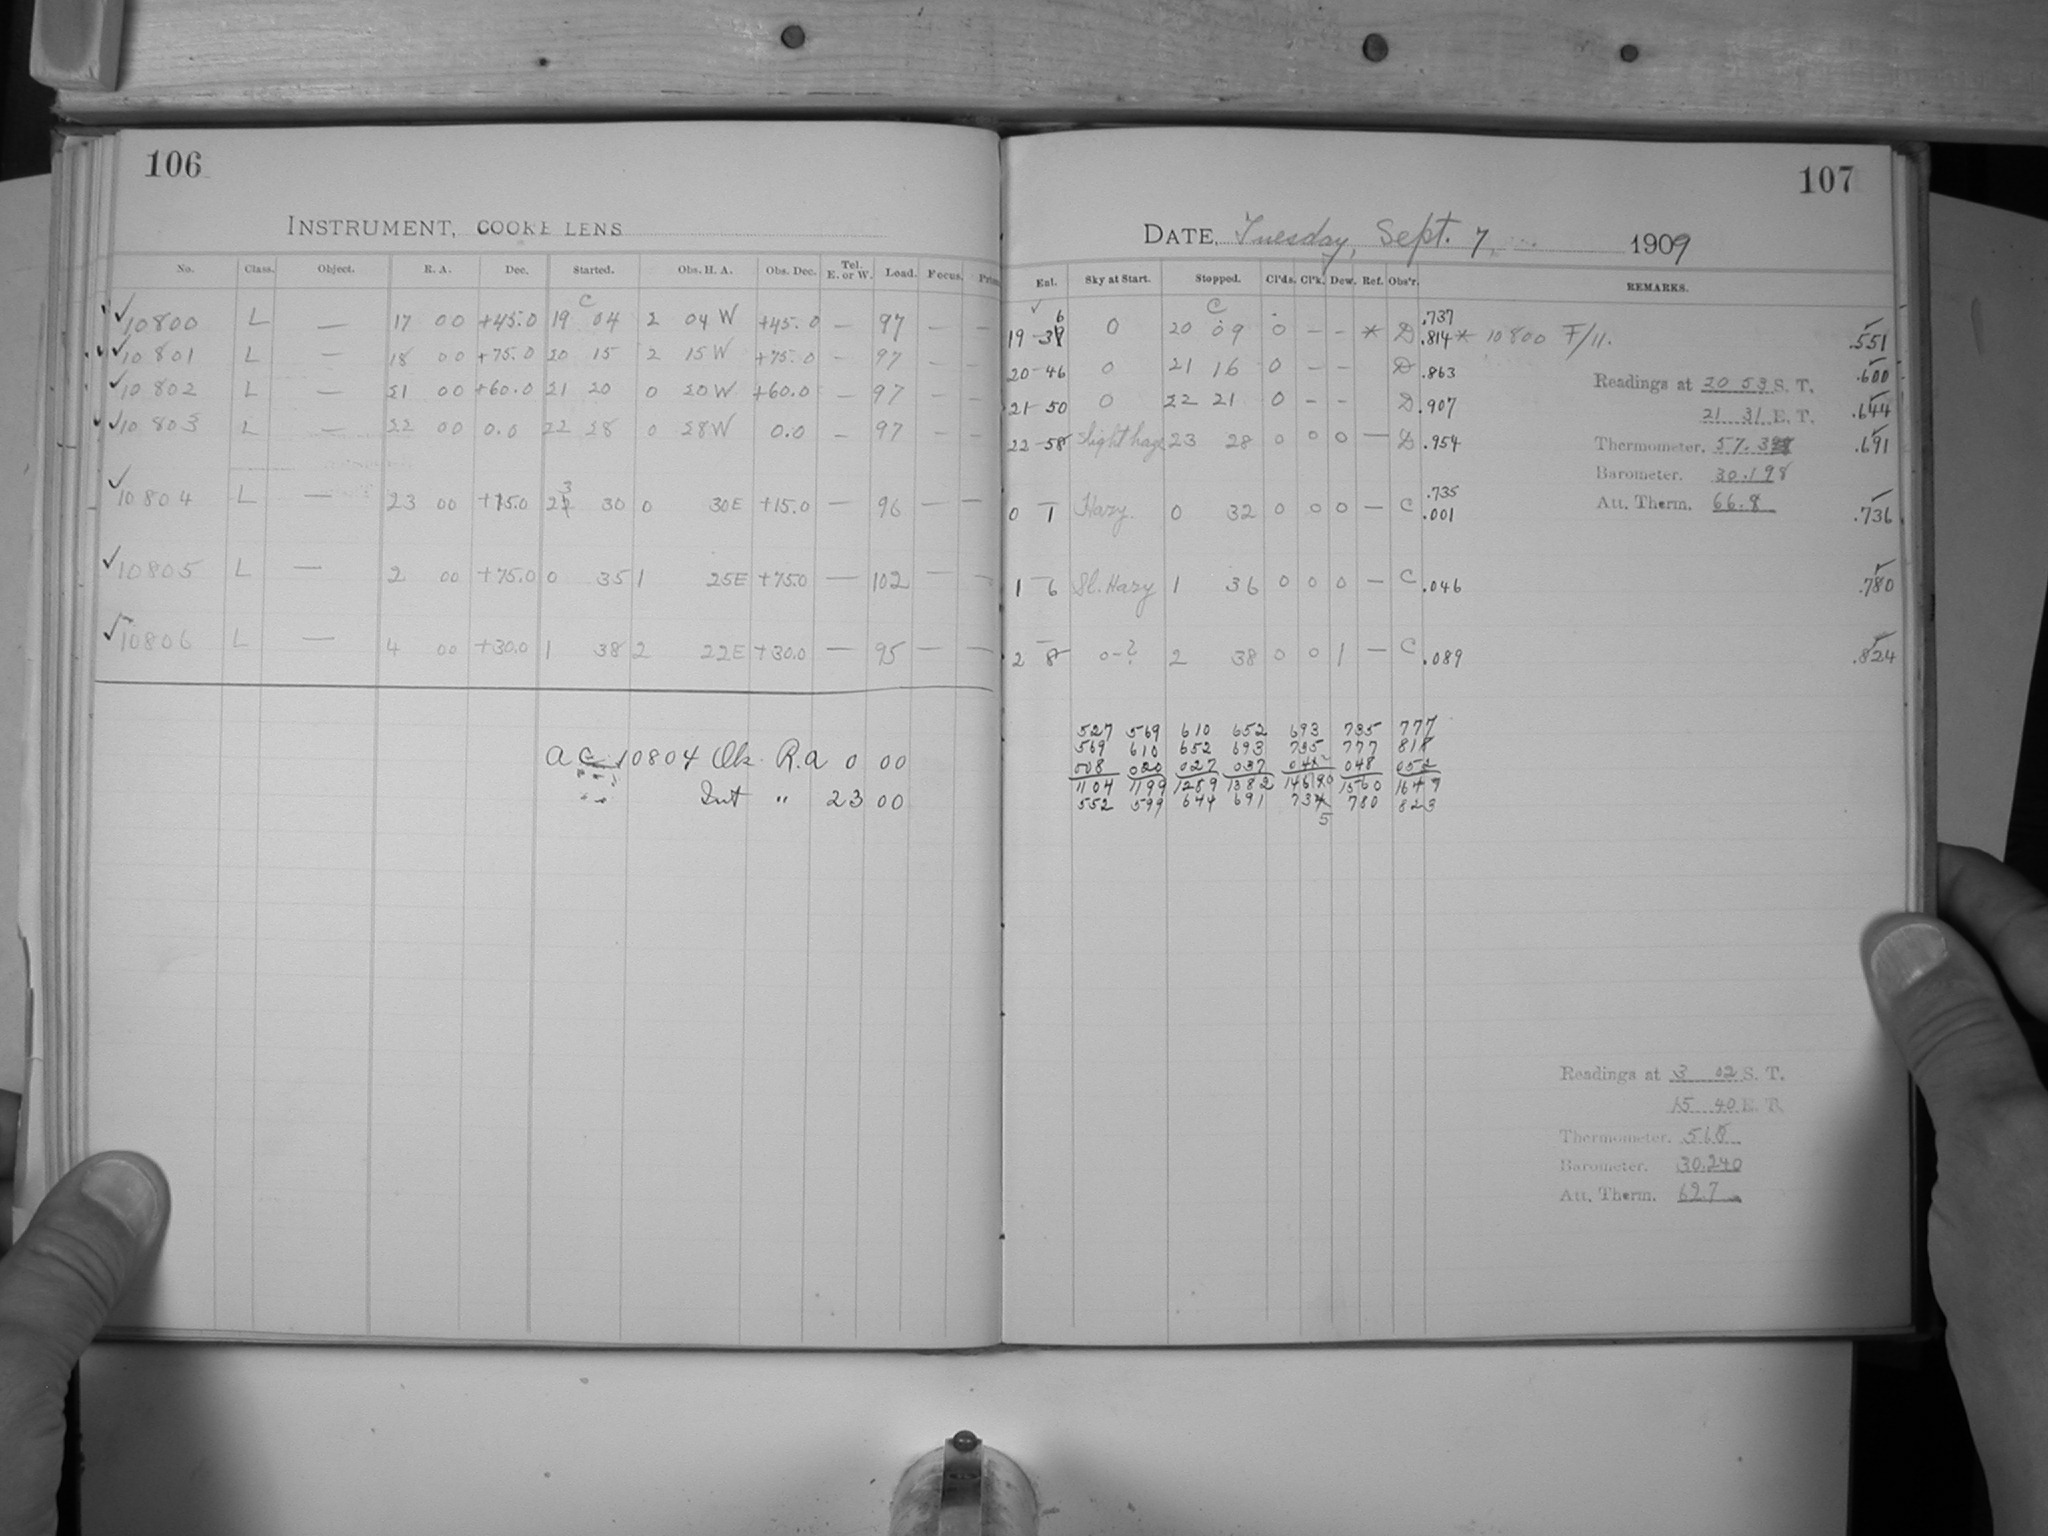 106
INSTRUMENT, COOKE LENS
No. Class. Object. R. A. Dec. Started. Obs. H. A. Obs. Dec. Tel. E. or W. Load. Focus.
C
✓10800 L — 17 00 +45.0 19 04 2 04 W +45.0 — 97 — —
✓10801 L — 18 00 +75.0 20 15 2 15 W +75.0 — 97 — —
✓10802 L — 21 00 +60.0 21 20 0 20 W +60.0 — 97 — —
✓10803 L — 22 00 0.0 22 28 0 28 W 0.0 — 97 — —
3
✓10804 L — 23 00 +15.0 22 30 0 30E +15.0 — 96 — —
✓10805 L — 2 00 +75.0 0 35 1 25E +75.0 — 102 — —
✓10806 L — 4 00 +30.0 1 38 2 22E +30.0 — 95 — —
AC 10804 Ok. R.A 0 00
Int " 23 00
107
DATE, Tuesday, Sept. 7, 1909
Ent. Sky at Start. Stopped. Cl'ds. Cl'k. Dew. Ref. Obs'r. REMARKS.
✓ 6 C .737
19-37 0 20 09 0 — — * D .814 * 10800 F/11. .551
20-46 0 21 16 0 — — D .863 .600
21-50 0 22 21 0 — — D .907 .644
22-58 Slight haze 23 28 0 0 0 — D .954 .691
.735
0 1 Hazy. 0 32 0 0 0 — C .001 .736
1 6 Sl. Hazy 1 36 0 0 0 — C .046 .780
2 8 0-? 2 38 0 0 1 — C .089 .824
Readings at 20 53 S. T.
21 31 E. T.
Thermometer. 57.3
Barometer. 30.198
Att. Therm. 66.8
527 569 610 652 693 735 777
569 610 652 693 735 777 818
008 020 027 037 048 052
1104 1199 1289 1382 1560 1647
552 599 644 691 734 780 823
5
Readings at 3 02 S. T.
15 40 E. T.
Thermometer. 56.8
Barometer. 30.240
Att. Therm. 69.7